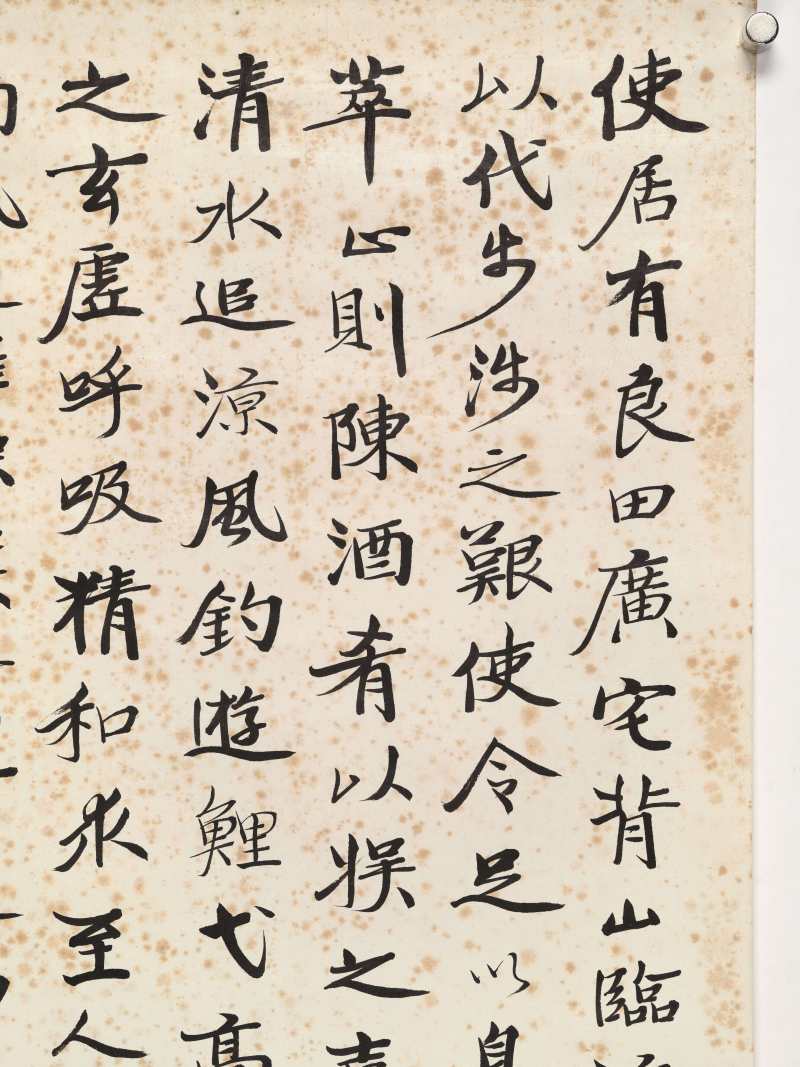 使居有良田廣宅背山臨
以代步涉之艱使令足以息
萃止則陳酒肴以娛之
清水追涼風釣遊鯉弋高
之玄虛呼吸精和求至人